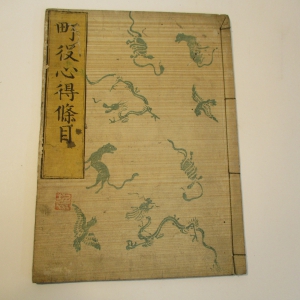 町役心得條目